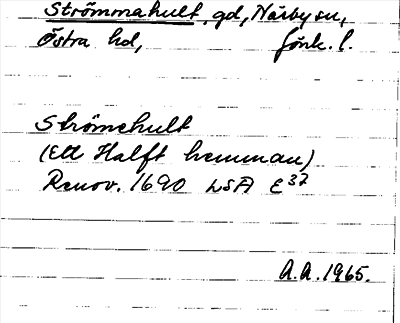 Strömmahult, gd, Näsby sn,
Östra hd, Jönk. l.
Strömehult
(Ett Halft hemman)
Renov. 1690 LSA E37
A.A. 1965.